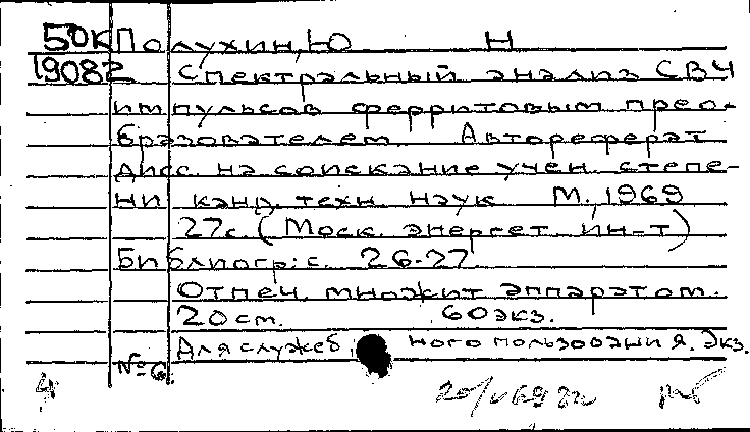 50К Полухин, Ю Н
19082 Спектральный анализ СВЧ
импульсов ферритовым прео-
бразователем. Автореферат
дисс. на соискание учен. степе-
ни канд. техн. наук М., 1969
27с. (Моск. энергет. ин-т)
Библиогр: с. 26-27
Отпеч. множит аппаратом.
20см. 60экз.
Для служеб ного пользования. Экз.
№6.
4